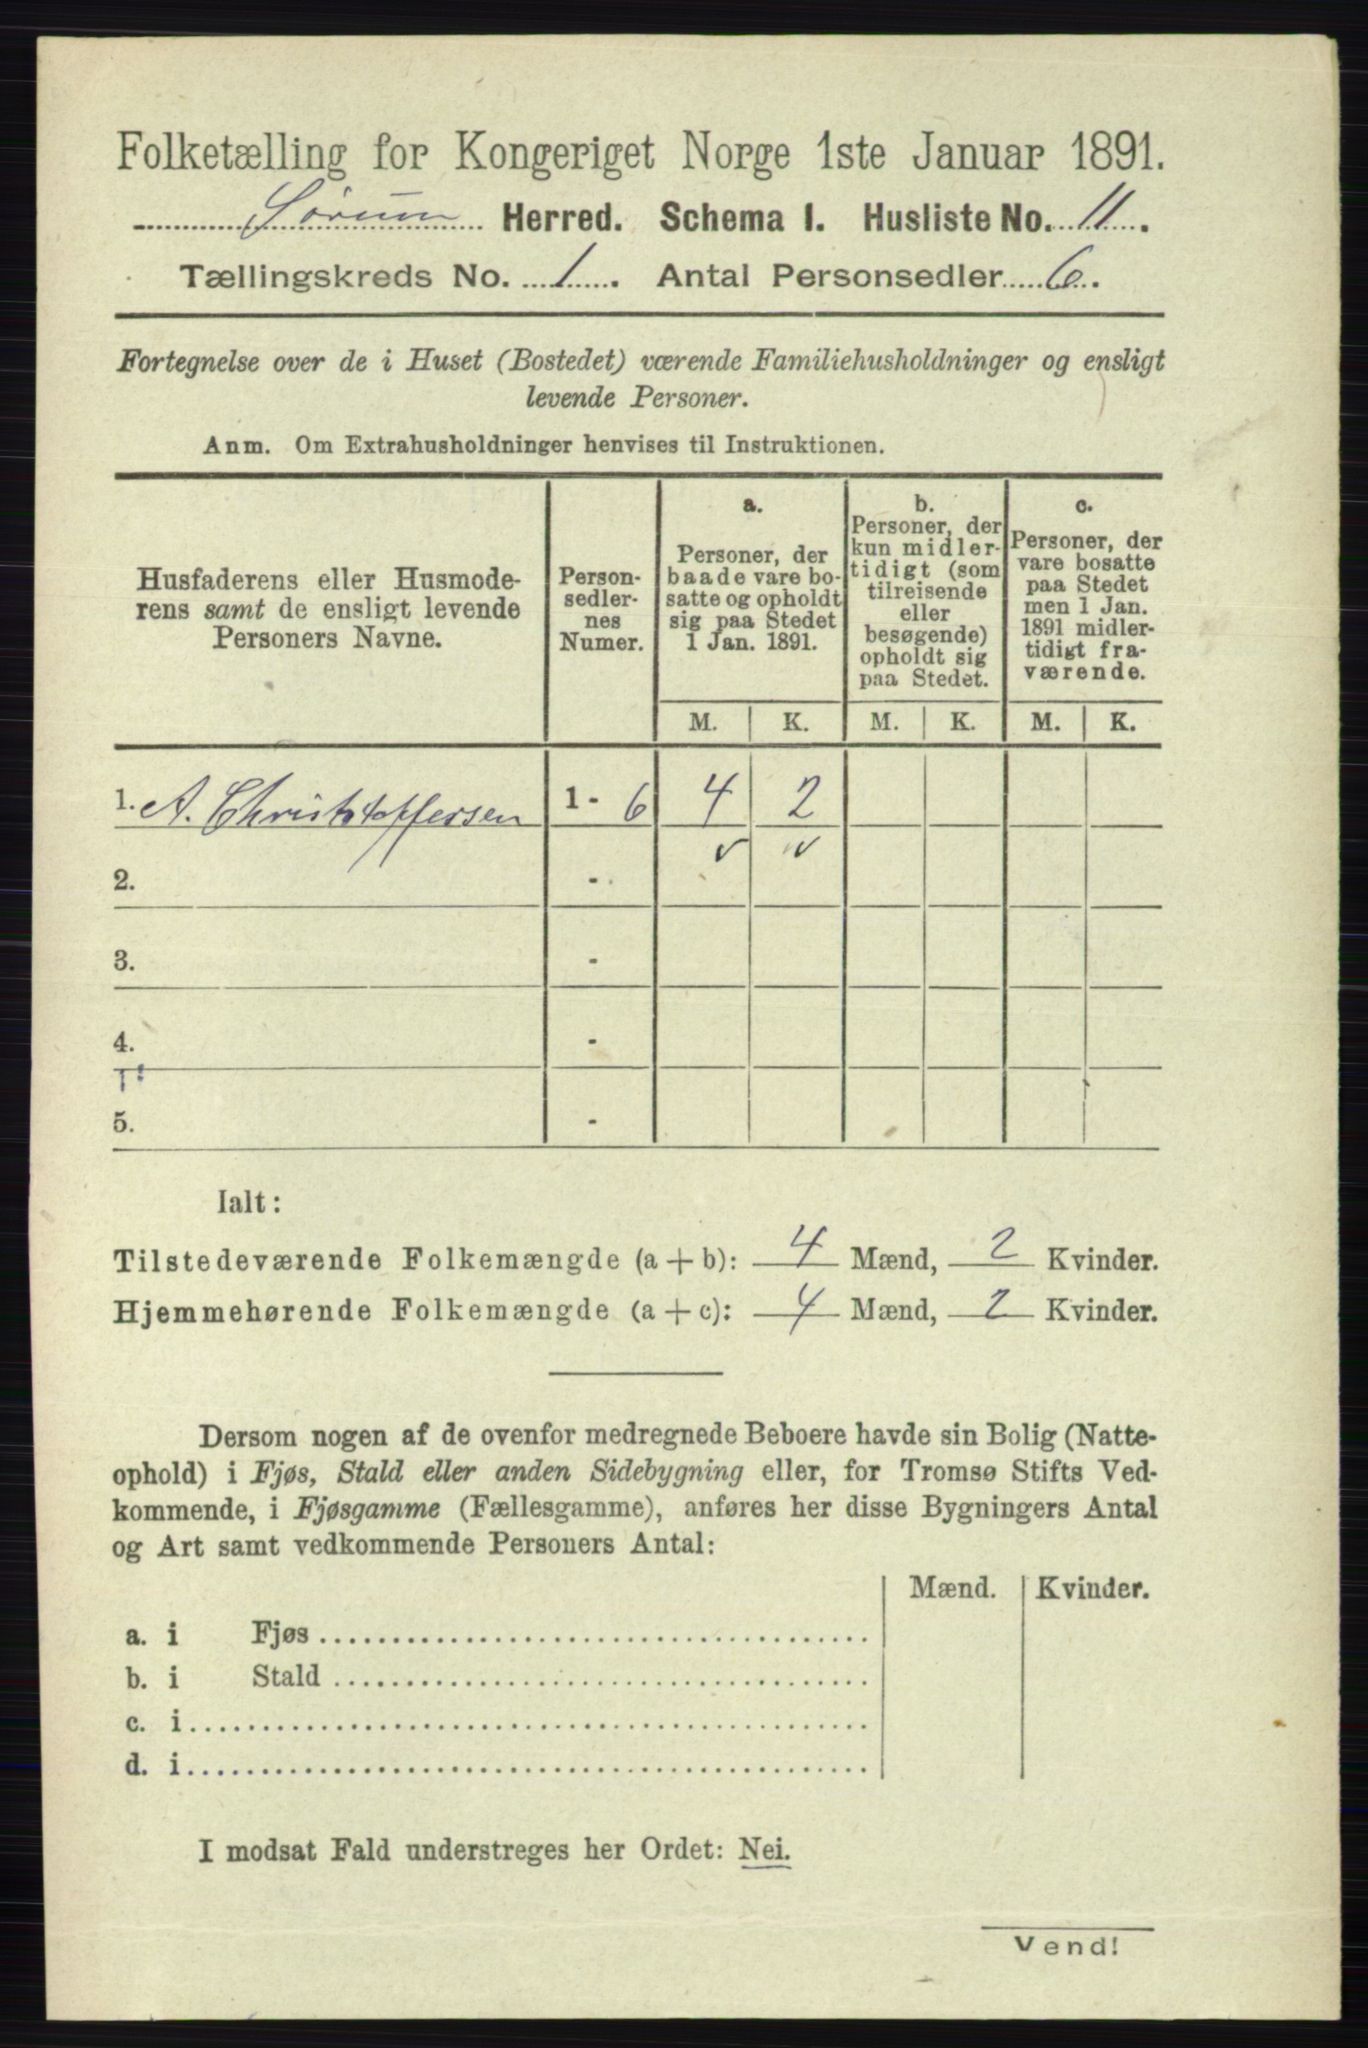 Folketælling for Kongeriget Norge 1ste Januar 1891.
Sørum Herred. Schema I. Husliste No. 11.
Tællingskreds No. 1. Antal Personsedler 6.
Fortegnelse over de i Huset (Bostedet) værende Familiehusholdninger og ensligt
levende Personer.
Anm. Om Extrahusholdninger henvises til Instruktionen.
Husfaderens eller Husmode-
rens samt de ensligt levende
Personers Navne.
Person-
sedler-
nes
Numer.
a.
Personer, der
baade vare bo-
satte og opholdt
sig paa Stedet
1 Jan. 1891.
b.
Personer, der
kun midler-
tidigt (som
tilreisende
eller
besøgende)
opholdt sig
paa Stedet.
c.
Personer, der
vare bosatte
paa Stedet
men 1 Jan.
1891 midler-
tidigt fra-
værende.
M. K. M. K. M. K.
1. A. Christoffersen 1 - 6 4 2
2. -
3. -
4. -
5. -
Ialt:
Tilstedeværende Folkemængde (a + b): 4 Mænd, 2 Kvinder.
Hjemmehørende Folkemængde (a + c): 4 Mænd, 2 Kvinder.
Dersom nogen af de ovenfor medregnede Beboere havde sin Bolig (Natte-
ophold) i Fjøs, Stald eller anden Sidebygning eller, for Tromsø Stifts Ved-
kommende, i Fjøsgamme (Fællesgamme), anføres her disse Bygningers Antal
og Art samt vedkommende Personers Antal:
Mænd. Kvinder.
a. i Fjøs
b. i Stald
c. i
d. i
I modsat Fald understreges her Ordet: Nei.
Vend!